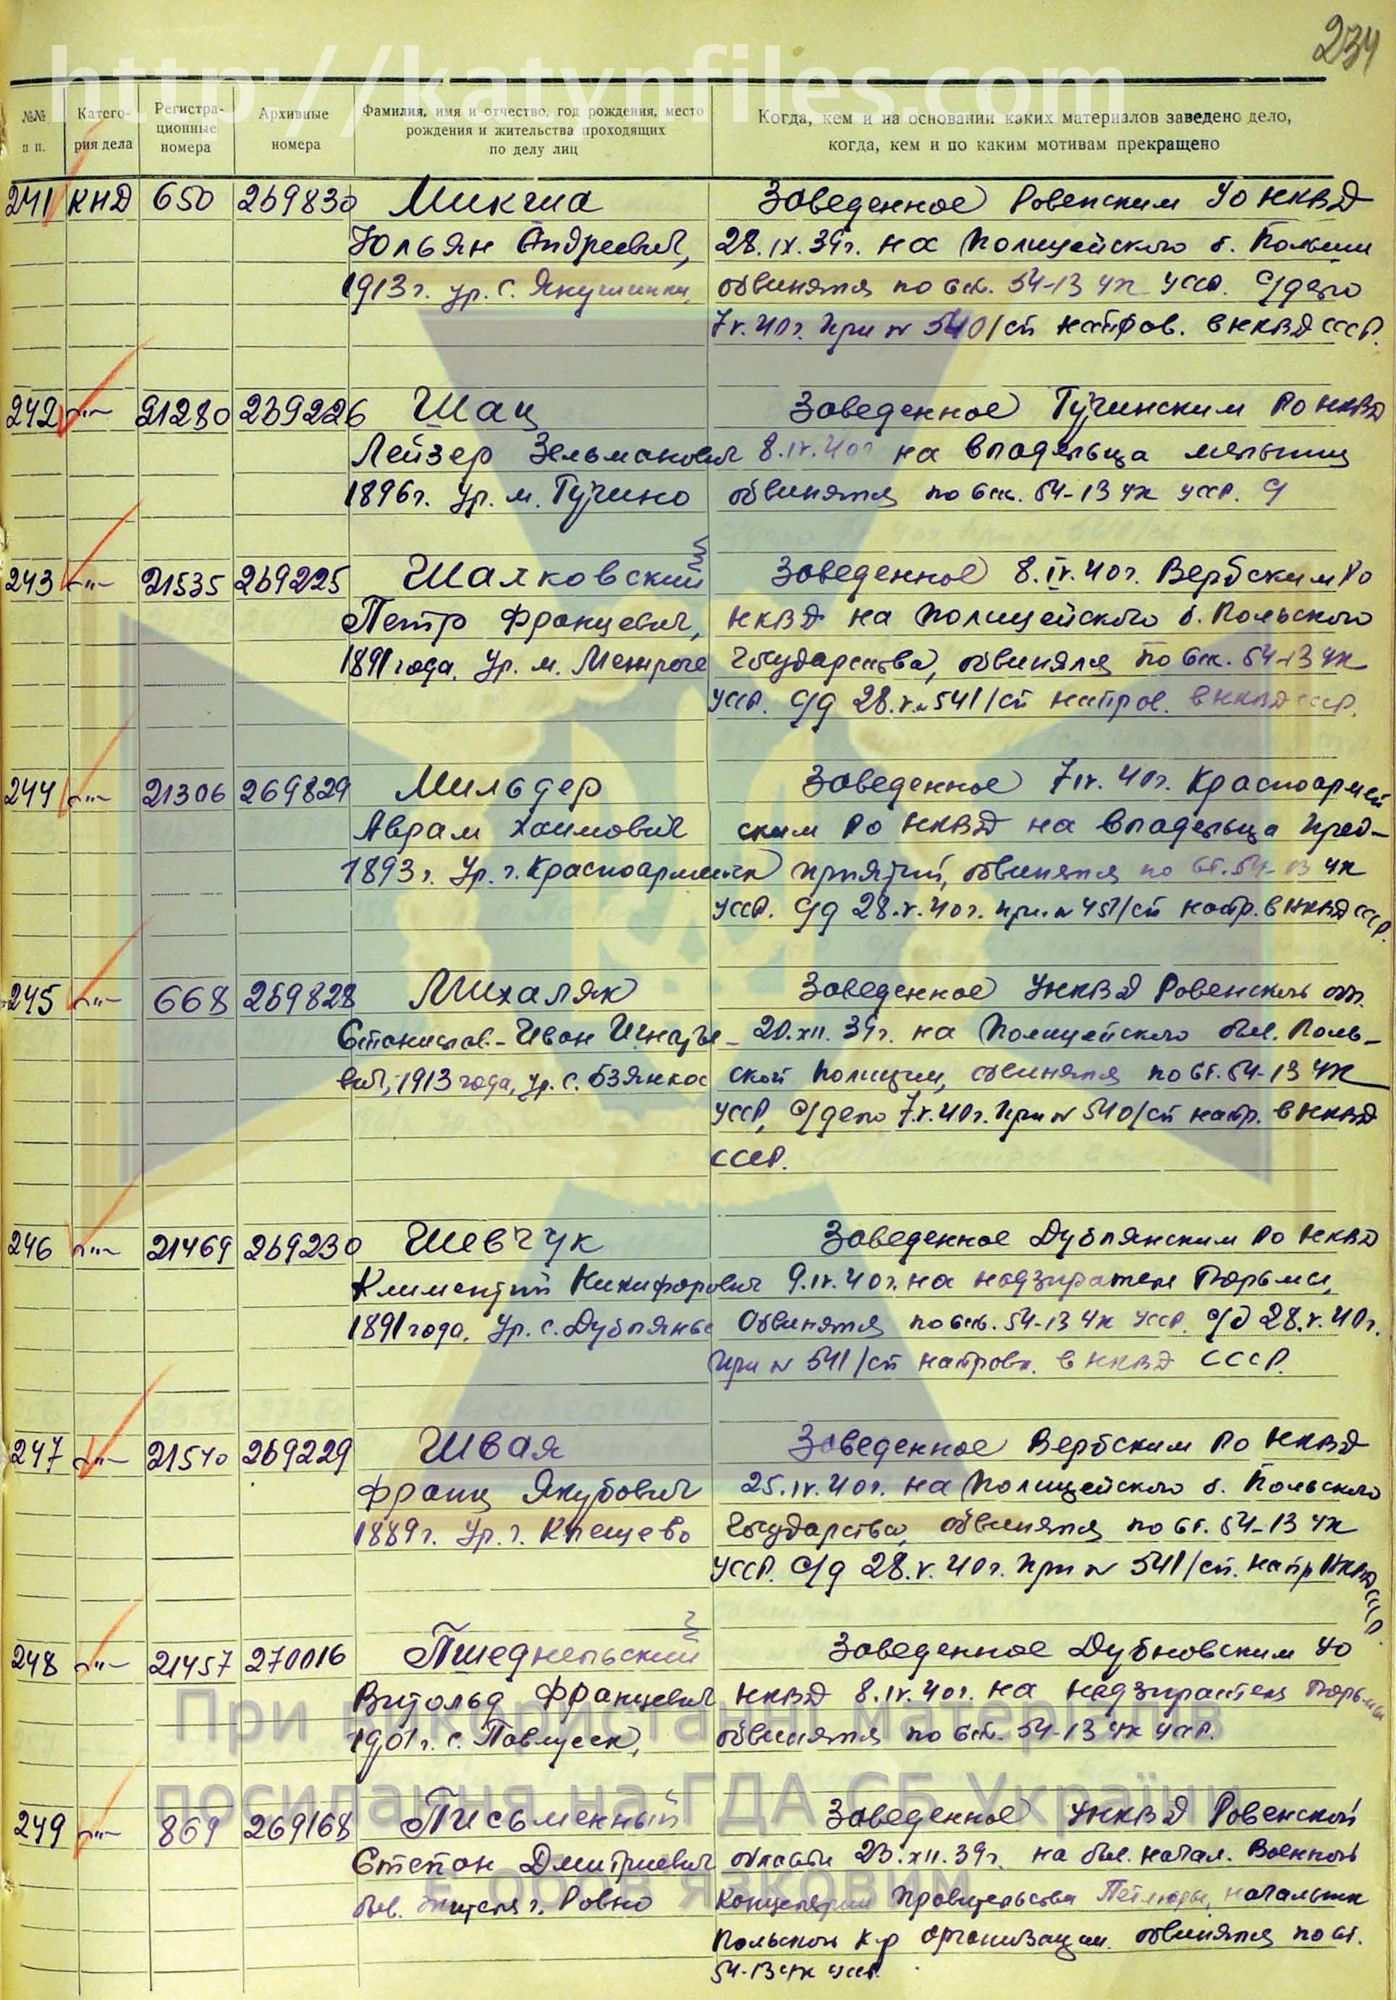 234
http://katynfiles.com
№№ п п.
Катего-
рия дела
Регистра-
ционные
номера
Архивные
номера
Фамилия, имя и отчество, год рождения, место
рождения и жительства проходящих
по делу лиц
Когда, кем и на основании каких материалов заведено дело,
когда, кем и по каким мотивам прекращено
241 КНД 650 269830 Микгиа Заведенное Ровенским УО НКВД
Юльян Андреевич, 28.IX.39г. на полицейского б. Польши
1913г. ур. с. обвинялся по ст. 54-13 УК УССР. С/дело
7.V.40г. при № 540/сп направ. в НКВД СССР.
242 —"— 21280 269226 Шац Заведенное Тучинским РО НКВД
Лейзер Зельманович 8.IV.40г на владельца мельниц
1896г. ур. м. Тучино обвинялся по ст. 54-13 УК УССР. С
243 —"— 21535 269225 Шалковский Заведенное 8.IV.40г. Вербским РО
Петр Францевич, НКВД на полицейского б. Польского
1891 года. ур. м. государства, обвинялся по ст. 54-13 УК
УССР. С/д 28.V. № 541/сп направ. в НКВД СССР.
244 —"— 21306 269829 Мильдер Заведенное 7.IV.40г. Красноармей
Аврам Хаимович ским РО НКВД на владельца пред-
1893г. Ур. г. Красноармейск приятий, обвинялся по ст. 54-13 УК
УССР. С/д 28.V.40г. при. № 451/сп напр. в НКВД СССР.
245 —"— 668 269828 Михаляк Заведенное УНКВД Ровенской обл.
Станислав-Иван Игнатье- 20.XII.39г. на полицейского быв. Поль-
вич, 1913 года, ур. с. Бзянкос ской полиции, обвинялся по ст. 54-13 УК
УССР, С/дело 7.V.40г. при № 540/сп напр. в НКВД
СССР.
246 —"— 21469 269230 Шевчук Заведенное Дублянским РО НКВД
Климентий Никифорович 9.IV.40г. на надзирателя тюрьмы,
1891 года. Ур. с. Дубляны Обвинялся по ст. 54-13 УК УССР. С/д 28.V.40г.
при № 541/сп направл. в НКВД СССР.
247 —"— 21540 269229 Швая Заведенное Вербским РО НКВД
Франц Якубович 25.IV.40г. на полицейского б. Польского
1889г. Ур. г. Клещево Государства, обвинялся по ст. 54-13 УК
УССР. С/д 28.V.40г. при № 541/сп. напр НКВД СССР.
248 —"— 21457 270016 Пшедпельский Заведенное Дубновским УО
Витольд Францевич НКВД 8.IV.40г. на надзирателя тюрьмы
1901г. с. обвинялся по ст. 54-13 УК УССР.
249 —"— 869 269168 Письменный Заведенное УНКВД Ровенской
Степан Дмитриевич области 23.XII.39г. на быв. начал. Военной
быв. жителя г. Ровно Концелярии правительства Петлюры, начальник
Польской к-р организации. обвинялся по ст.
54-13 УК УССР.
При використанні матеріалів
посилання на ГДА СБ України
є обов'язковим